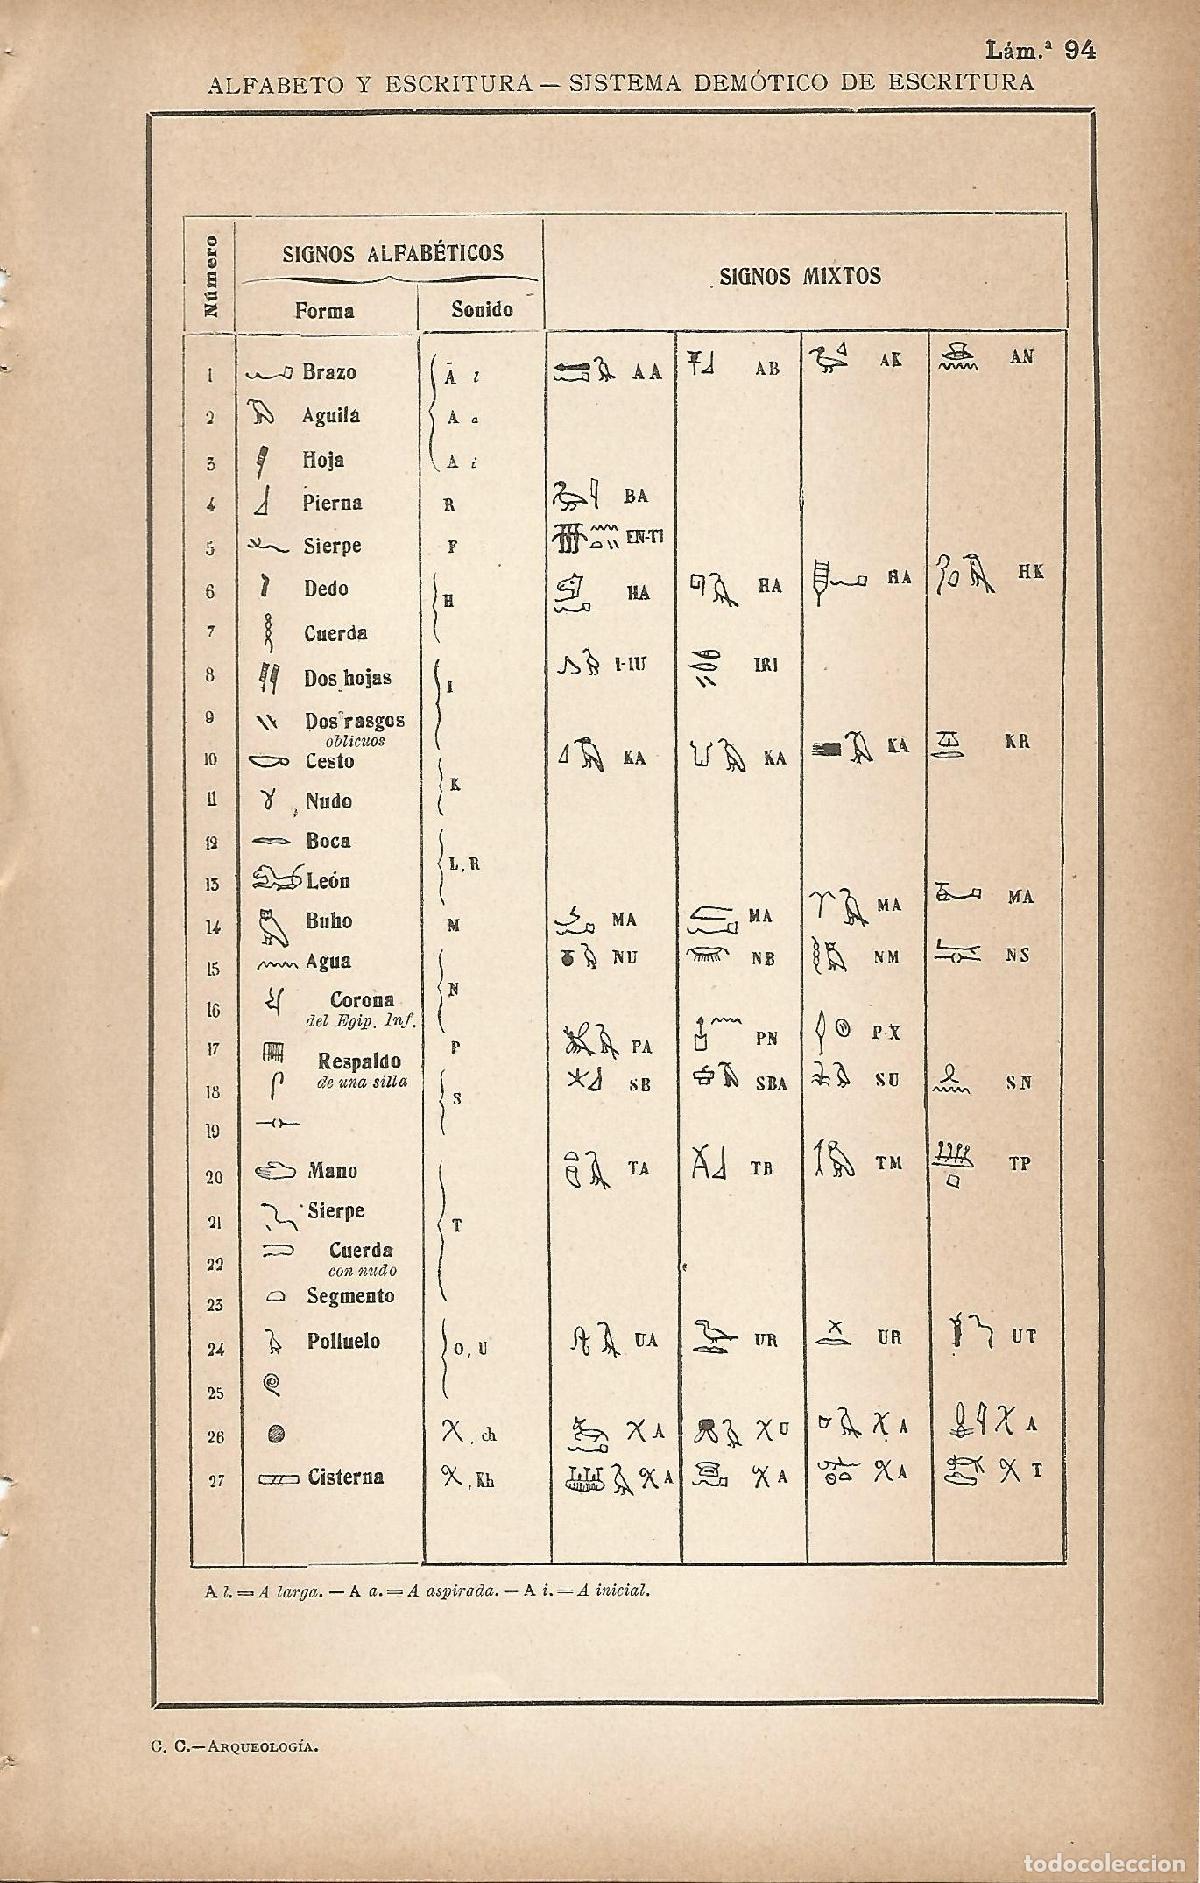 Lám.ª 94
ALFABETO Y ESCRITURA — SISTEMA DEMÓTICO DE ESCRITURA
Número
SIGNOS ALFABÉTICOS
SIGNOS MIXTOS
Forma Sonido
1 Brazo A l AA AB AK AN
2 Aguila A a
3 Hoja A i
4 Pierna R BA
5 Sierpe F EN-TI
6 Dedo H HA HA HA HK
7 Cuerda
8 Dos hojas I I-IU IRI
9 Dos rasgos
oblicuos
10 Cesto K KA KA KA KR
11 Nudo
12 Boca L, R
13 León
14 Buho M MA MA MA MA
15 Agua N NU NB NM NS
16 Corona
del Egip. Inf.
17 Respaldo P PA PN PX
de una silla
18 S SB SBA SU SN
19
20 Mano T TA TB TM TP
21 Sierpe
22 Cuerda
con nudo
23 Segmento
24 Polluelo O, U UA UR UR UT
25
26 X, ch XA XU XA XA
27 Cisterna X, Kh XA XA XA XT
A l. = A larga. — A a. = A aspirada. — A i. — A inicial.
C. C.—ARQUEOLOGÍA.
todocoleccion